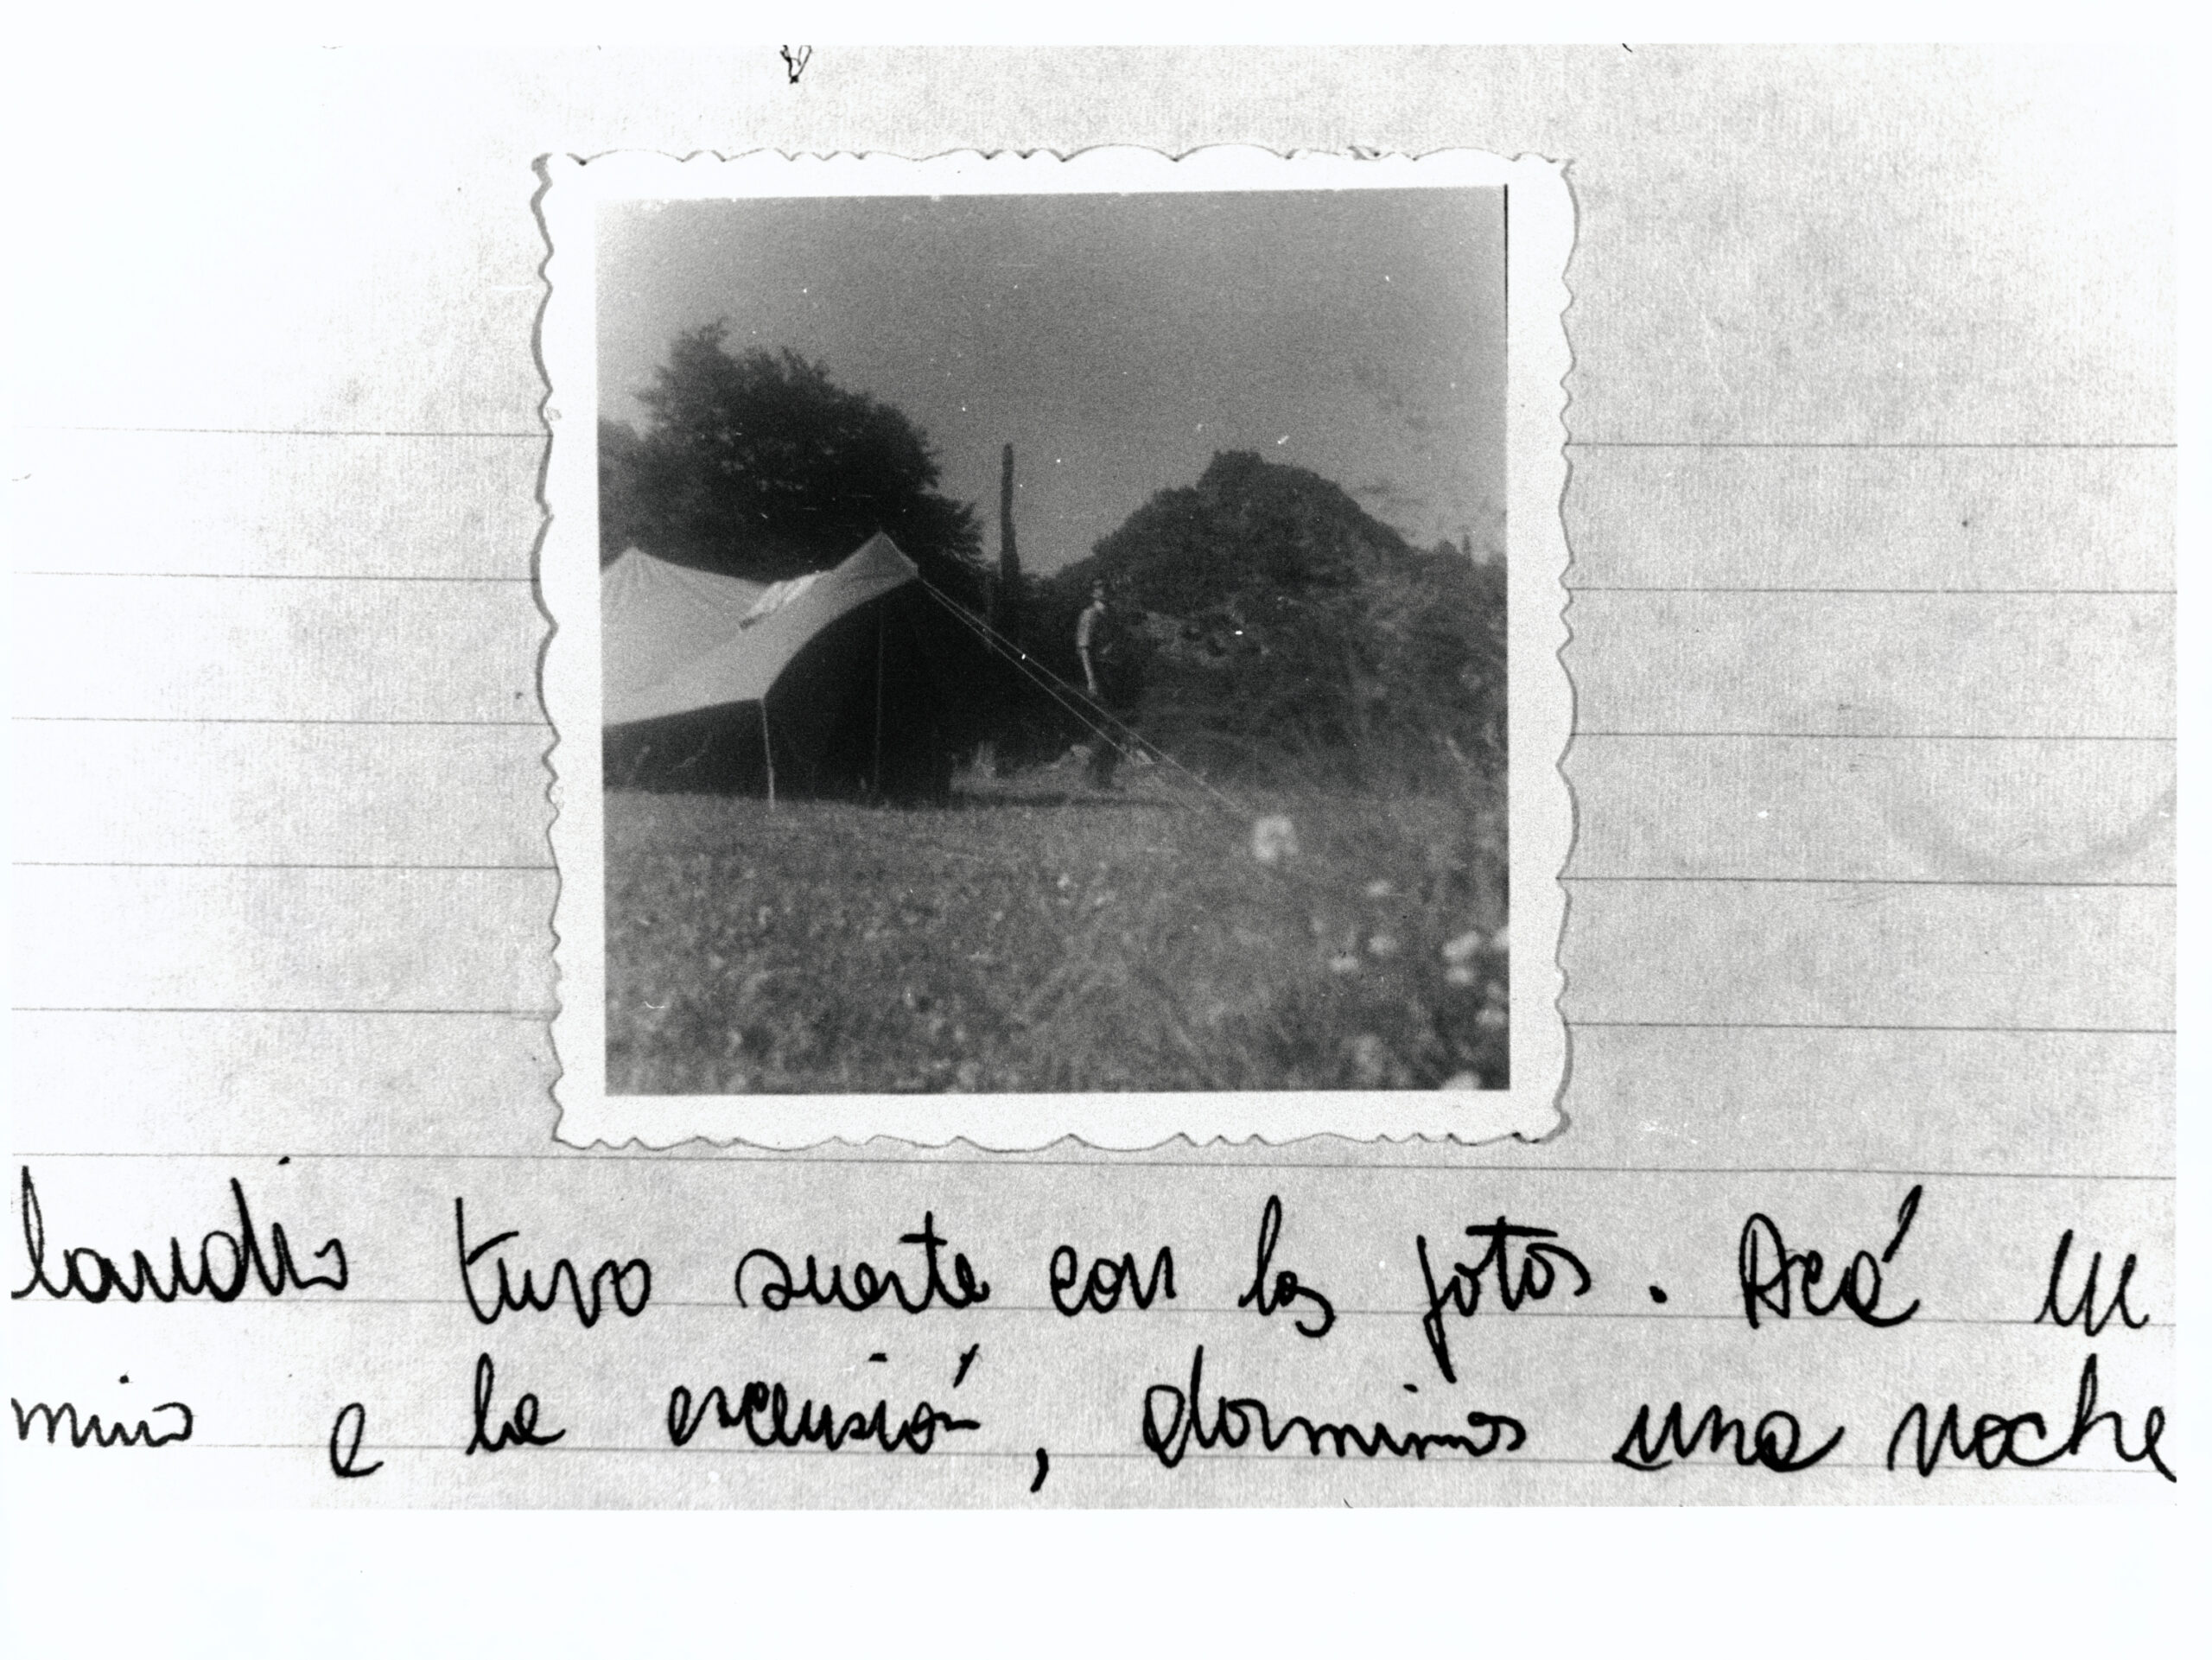 laudio tuvo suerte con las fotos. Acá un
mino a la exclusión, dormimos una noche